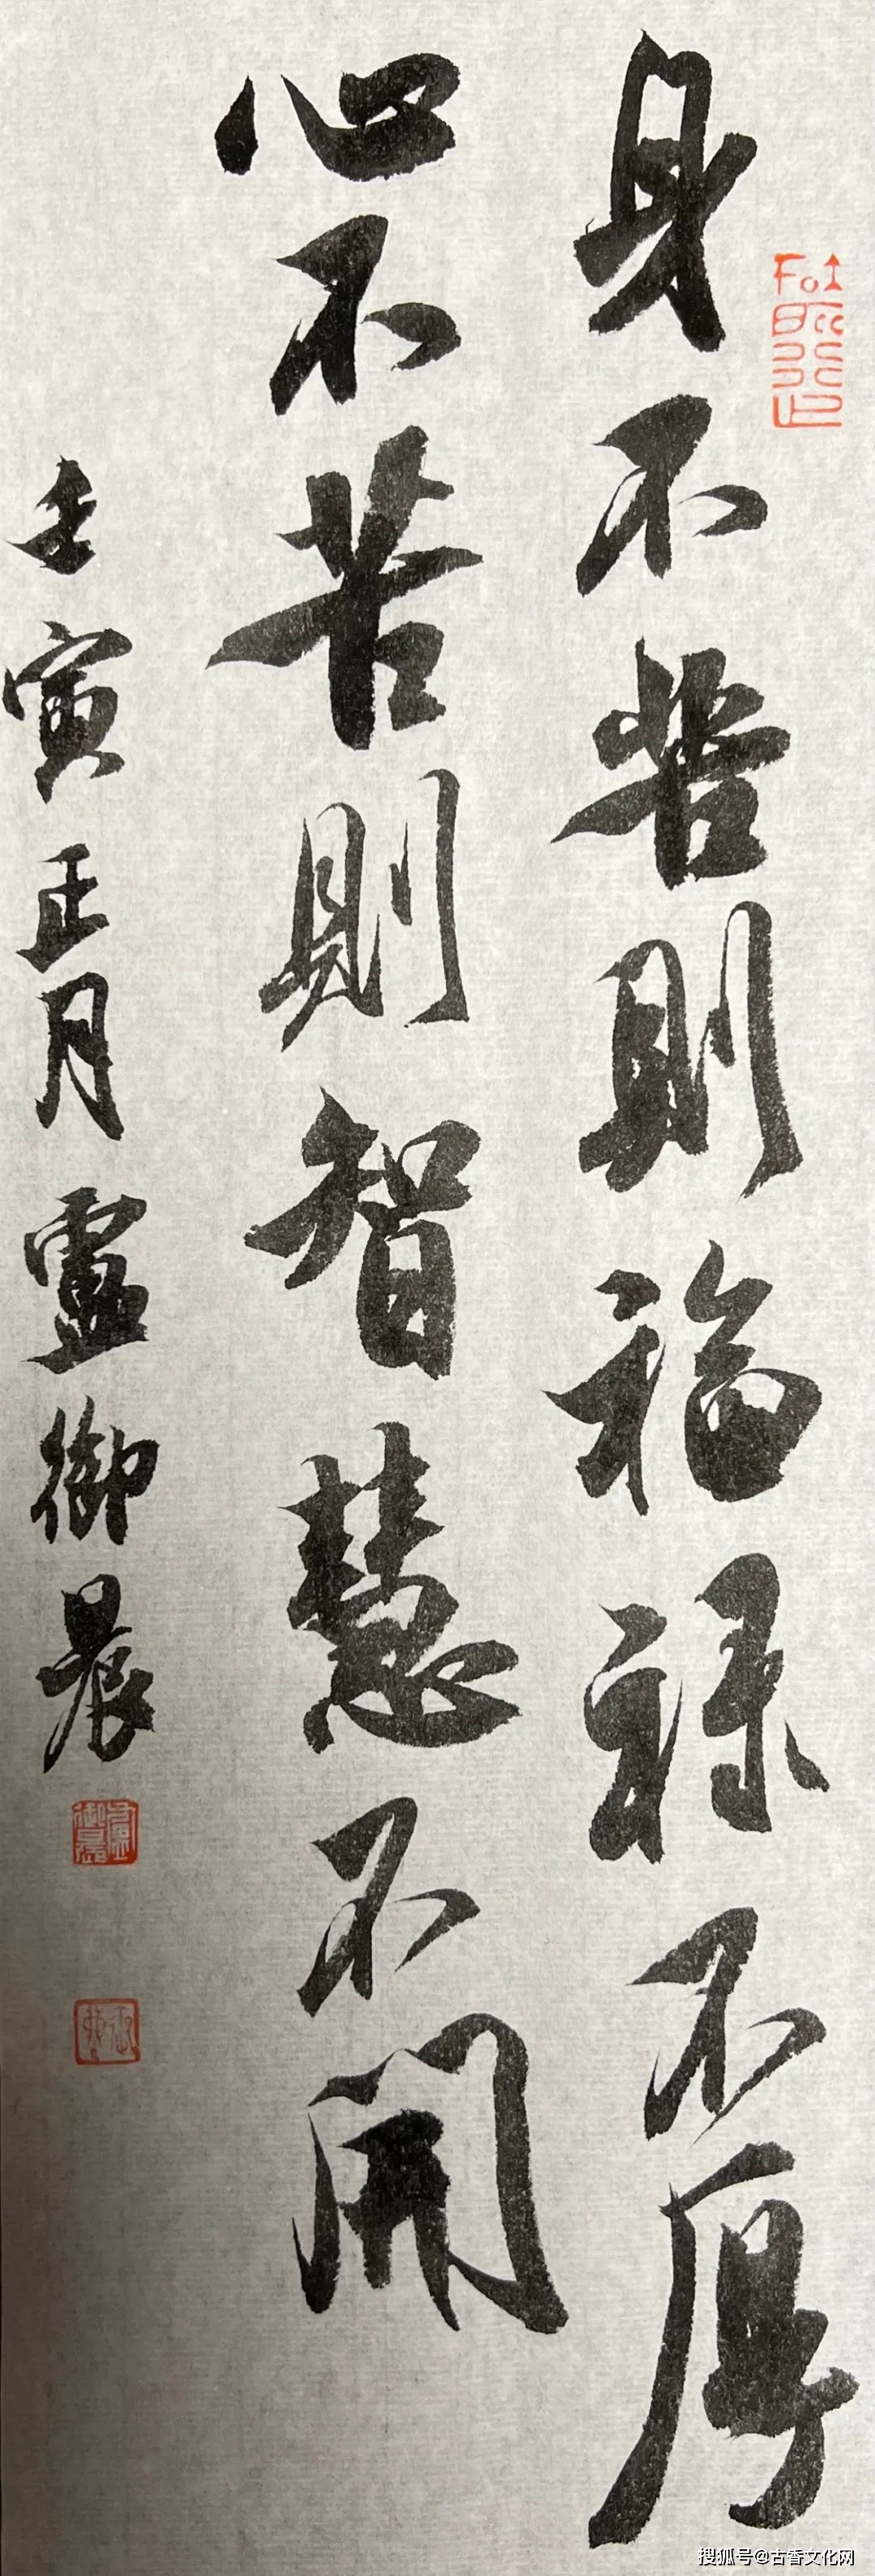 身不苦則福祿不厚
心不苦則智慧不開
壬寅正月盧御晨
搜狐号@古香文化网